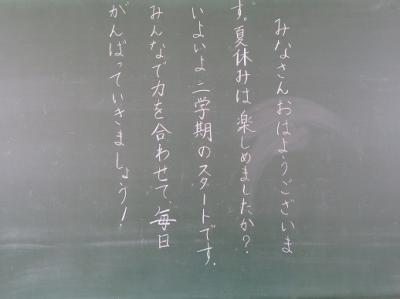 みなさんおはようございま
す。夏休みは楽しめましたか?
いよいよ二学期のスタートです。
みんなで力を合わせて、毎日
がんばっていきましょう!